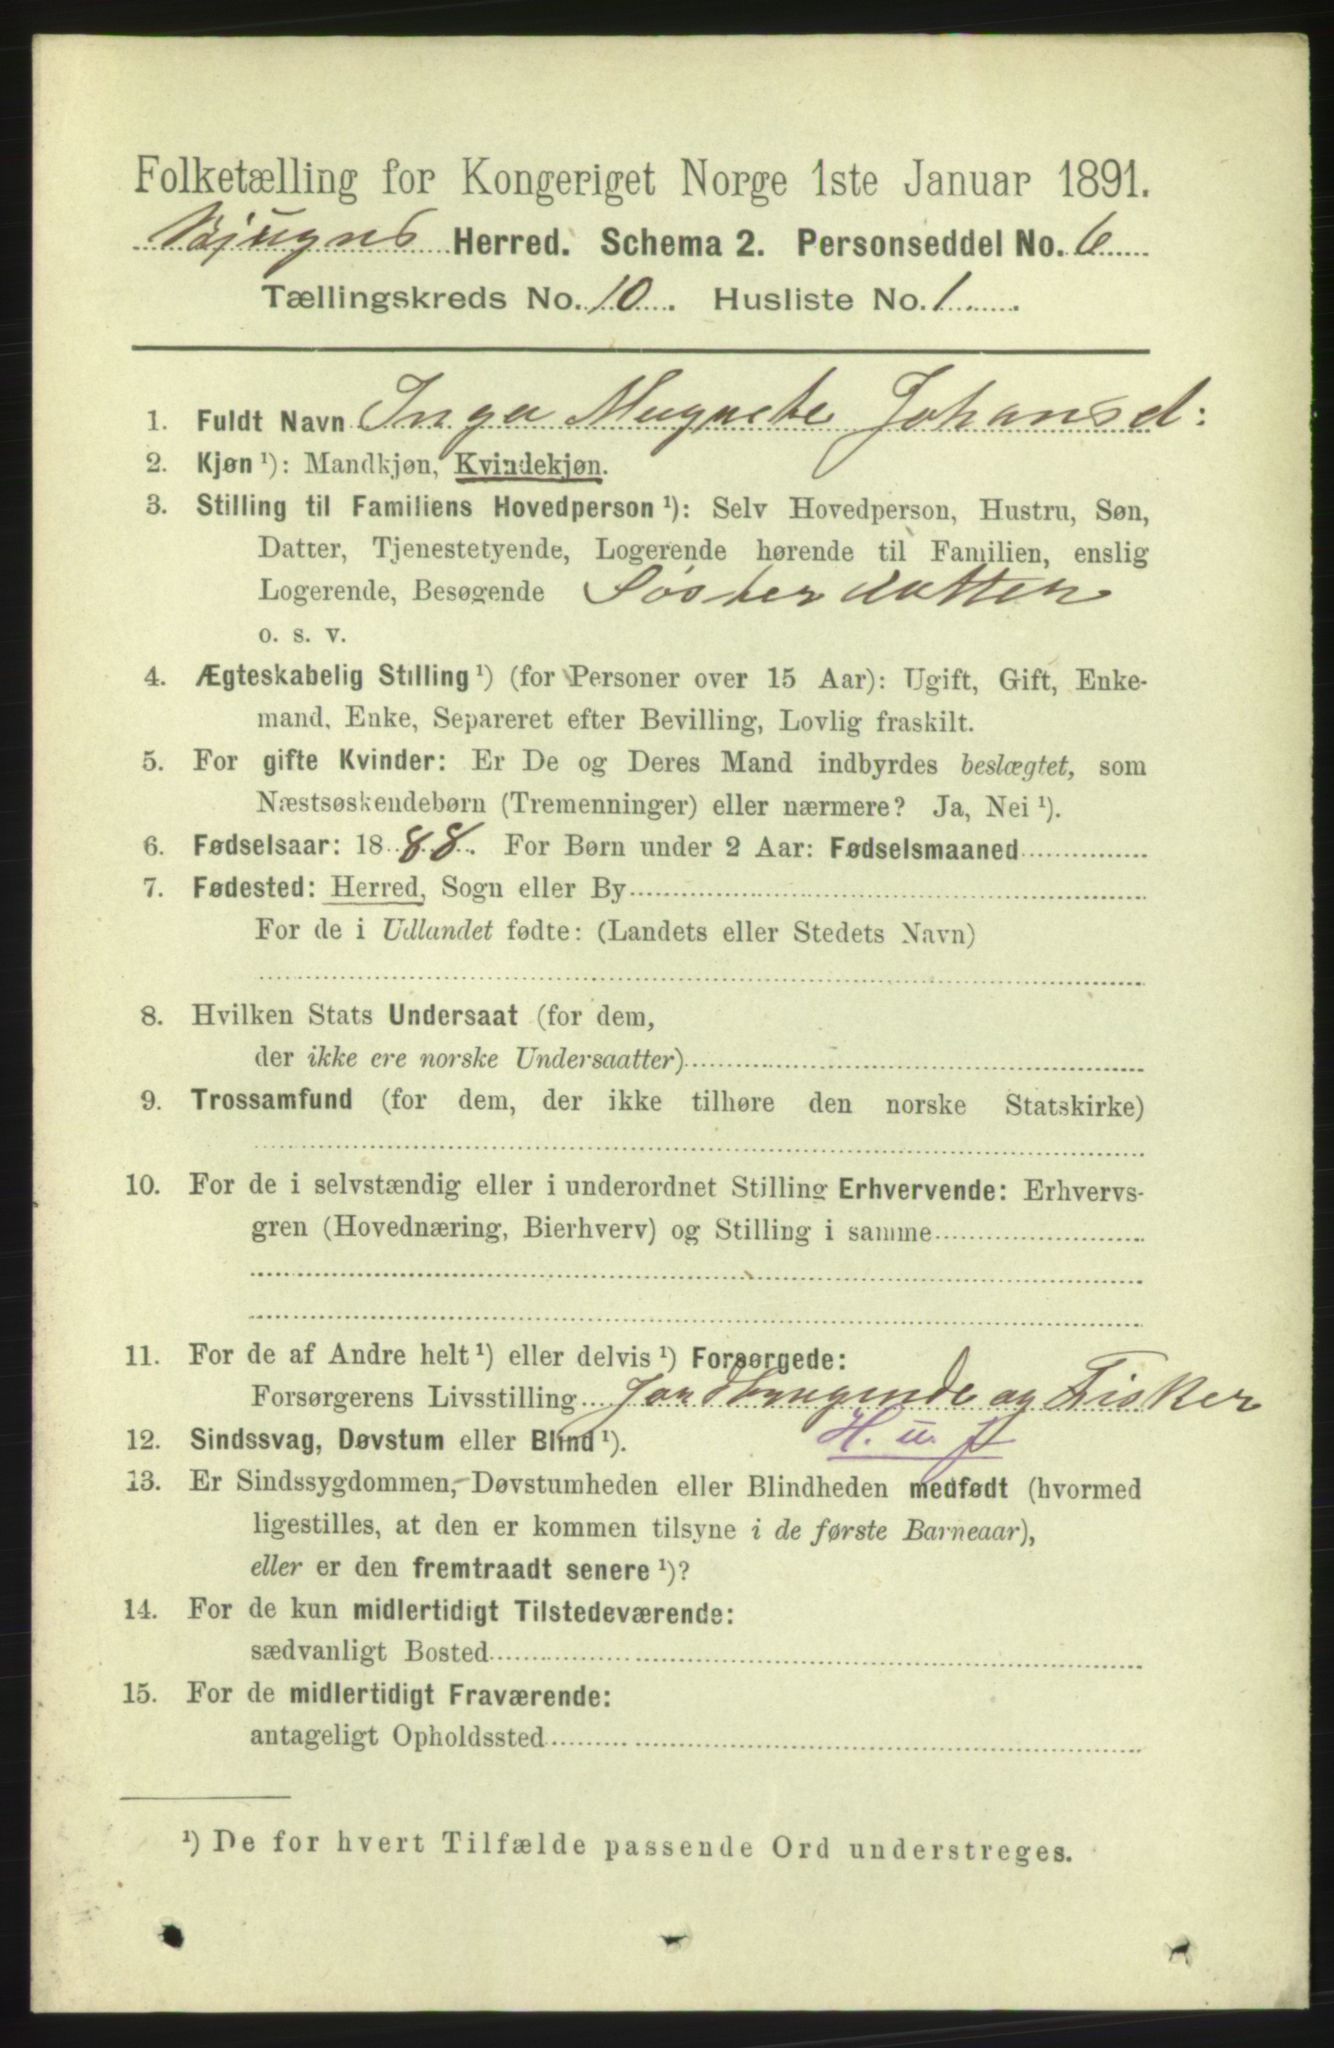 Folketælling for Kongeriget Norge 1ste Januar 1891.
Bjugns Herred. Schema 2. Personseddel No. 6
Tællingskreds No. 10. Husliste No. 1
1. Fuldt Navn Inga Magnete Johansd:
2. Kjøn ¹): Mandkjøn, Kvindekjøn.
3. Stilling til Familiens Hovedperson ¹): Selv Hovedperson, Hustru, Søn,
Datter, Tjenestetyende, Logerende hørende til Familien, enslig
Logerende, Besøgende Søsterdatter
o. s. v.
4. Ægteskabelig Stilling ¹) (for Personer over 15 Aar): Ugift, Gift, Enke-
mand, Enke, Separeret efter Bevilling, Lovlig fraskilt.
5. For gifte Kvinder: Er De og Deres Mand indbyrdes beslægtet, som
Næstsøskendebørn (Tremenninger) eller nærmere? Ja, Nei ¹).
6. Fødselsaar: 1888. For Børn under 2 Aar: Fødselsmaaned
7. Fødested: Herred, Sogn eller By
For de i Udlandet fødte: (Landets eller Stedets Navn)
8. Hvilken Stats Undersaat (for dem,
der ikke ere norske Undersaatter)
9. Trossamfund (for dem, der ikke tilhøre den norske Statskirke)
10. For de i selvstændig eller i underordnet Stilling Erhvervende: Erhvervs-
gren (Hovednæring, Bierhverv) og Stilling i samme
11. For de af Andre helt ¹) eller delvis ¹) Forsørgede:
Forsørgerens Livsstilling Jordbrugende og Fisker
12. Sindssvag, Døvstum eller Blind ¹). H. u. f
13. Er Sindssygdommen, Døvstumheden eller Blindheden medfødt (hvormed
ligestilles, at den er kommen tilsyne i de første Barneaar),
eller er den fremtraadt senere ¹)?
14. For de kun midlertidigt Tilstedeværende:
sædvanligt Bosted
15. For de midlertidigt Fraværende:
antageligt Opholdssted
¹) De for hvert Tilfælde passende Ord understreges.